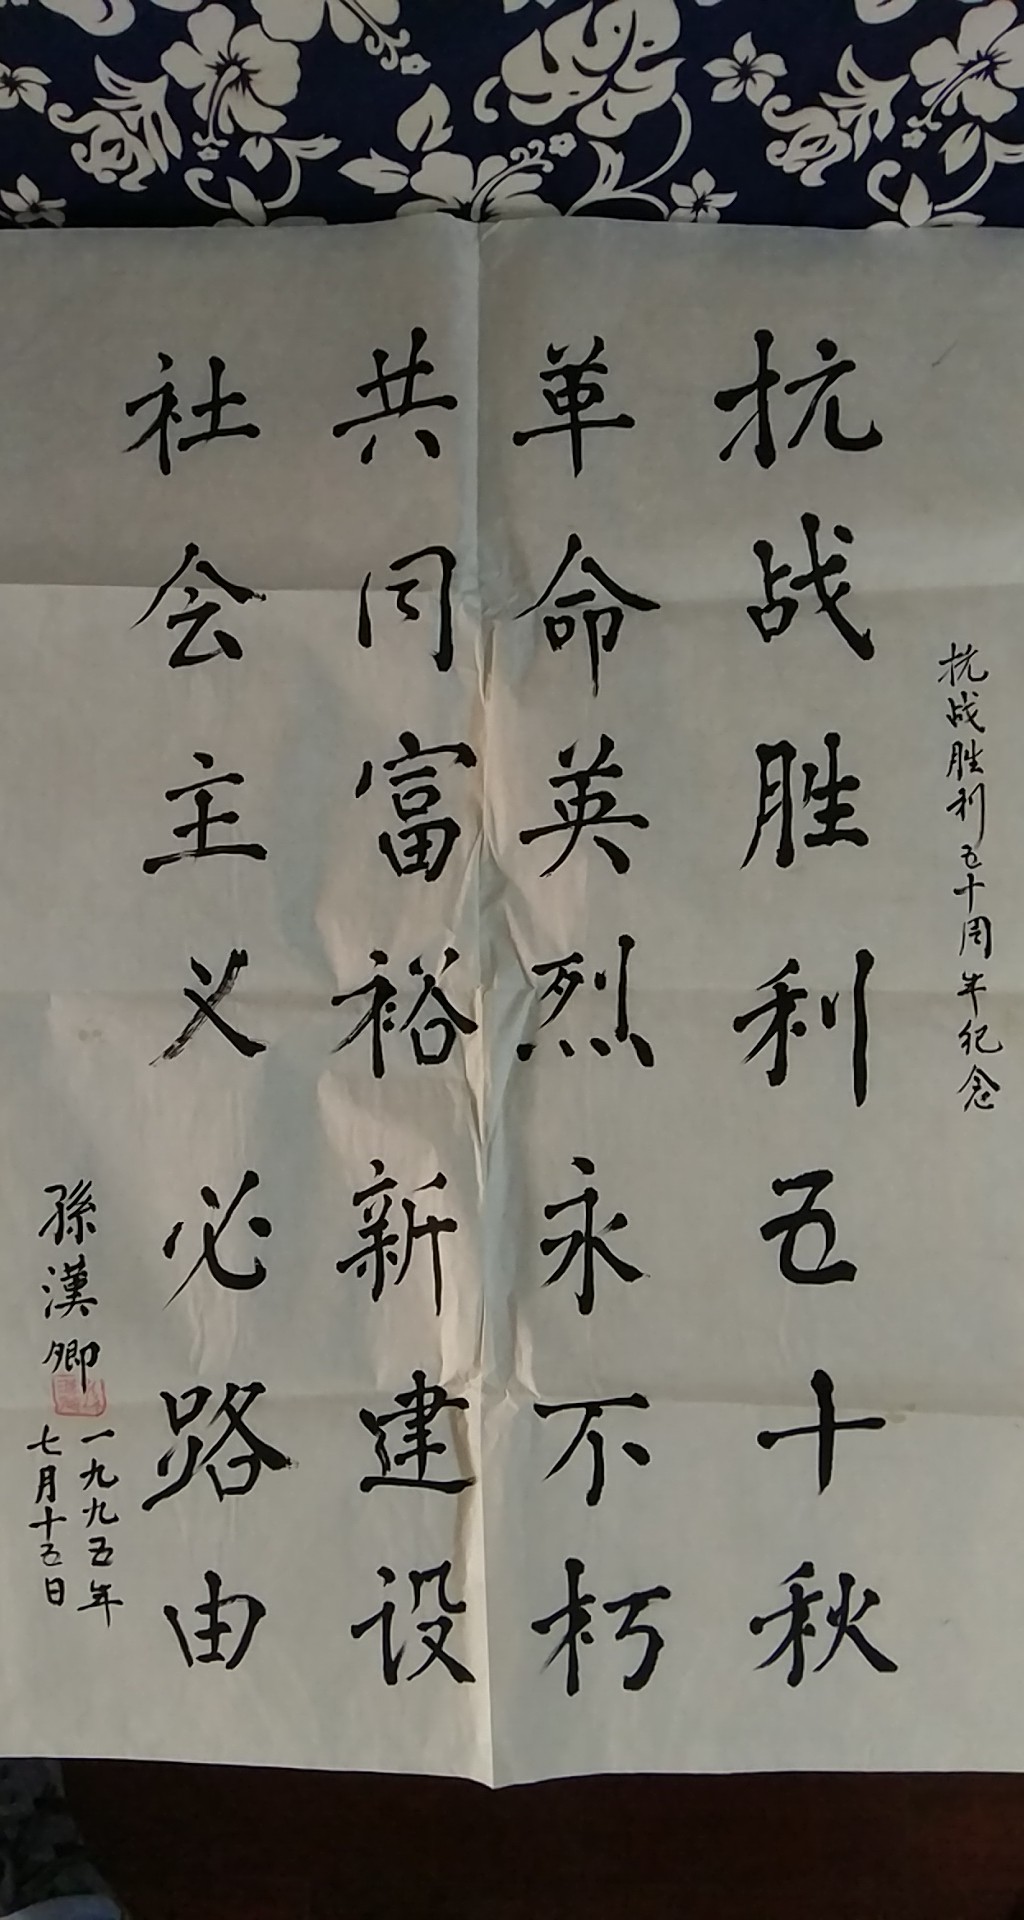 抗战胜利五十周年纪念
抗战胜利五十秋
革命英烈永不朽
共同富裕新建设
社会主义必路由
孫漢卿
一九九五年
七月十五日